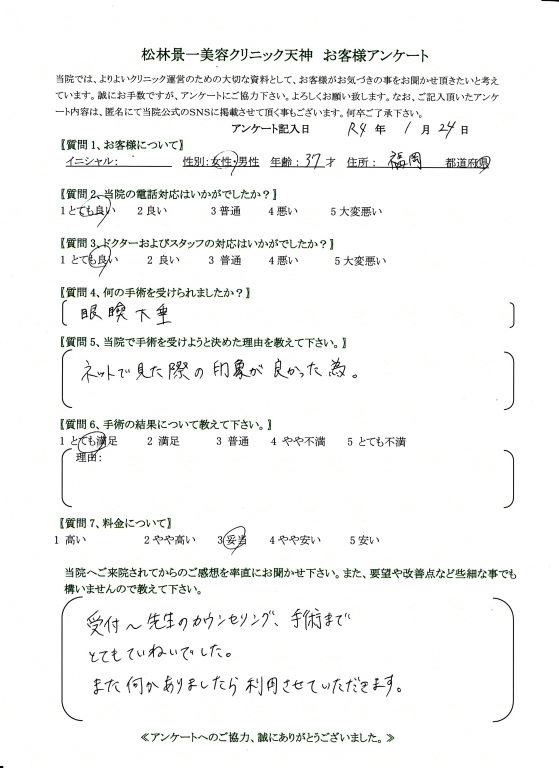 松林景一美容クリニック天神 お客様アンケート
当院では、よりよいクリニック運営のための大切な資料として、お客様がお気づきの事をお聞かせ頂きたいと考え
ています。誠にお手数ですが、アンケートにご協力下さい。よろしくお願い致します。なお、ご記入頂いたアンケ
ート内容は、匿名にて当院公式のSNSに掲載させて頂く事もございます。何卒ご了承下さい。
アンケート記入日 R4 年 1 月 24 日
【質問1、お客様について】
イニシャル: 性別:女性・男性 年齢:37才 住所: 福岡 都道府県
【質問2、当院の電話対応はいかがでしたか?】
1 とても良い 2 良い 3 普通 4 悪い 5 大変悪い
【質問3、ドクターおよびスタッフの対応はいかがでしたか?】
1 とても良い 2 良い 3 普通 4 悪い 5 大変悪い
【質問4、何の手術を受けられましたか?】
眼瞼下垂
【質問5、当院で手術を受けようと決めた理由を教えて下さい。】
ネットで見た際の印象が良かった為。
【質問6、手術の結果について教えて下さい。】
1 とても満足 2 満足 3 普通 4 やや不満 5 とても不満
理由:
【質問7、料金について】
1 高い 2 やや高い 3 妥当 4 やや安い 5 安い
当院へご来院されてからのご感想を率直にお聞かせ下さい。また、要望や改善点など些細な事でも
構いませんので教えて下さい。
受付～先生のカウンセリング、手術まで
とてもていねいでした。
また何かありましたら利用させていただきます。
≪アンケートへのご協力、誠にありがとうございました。≫